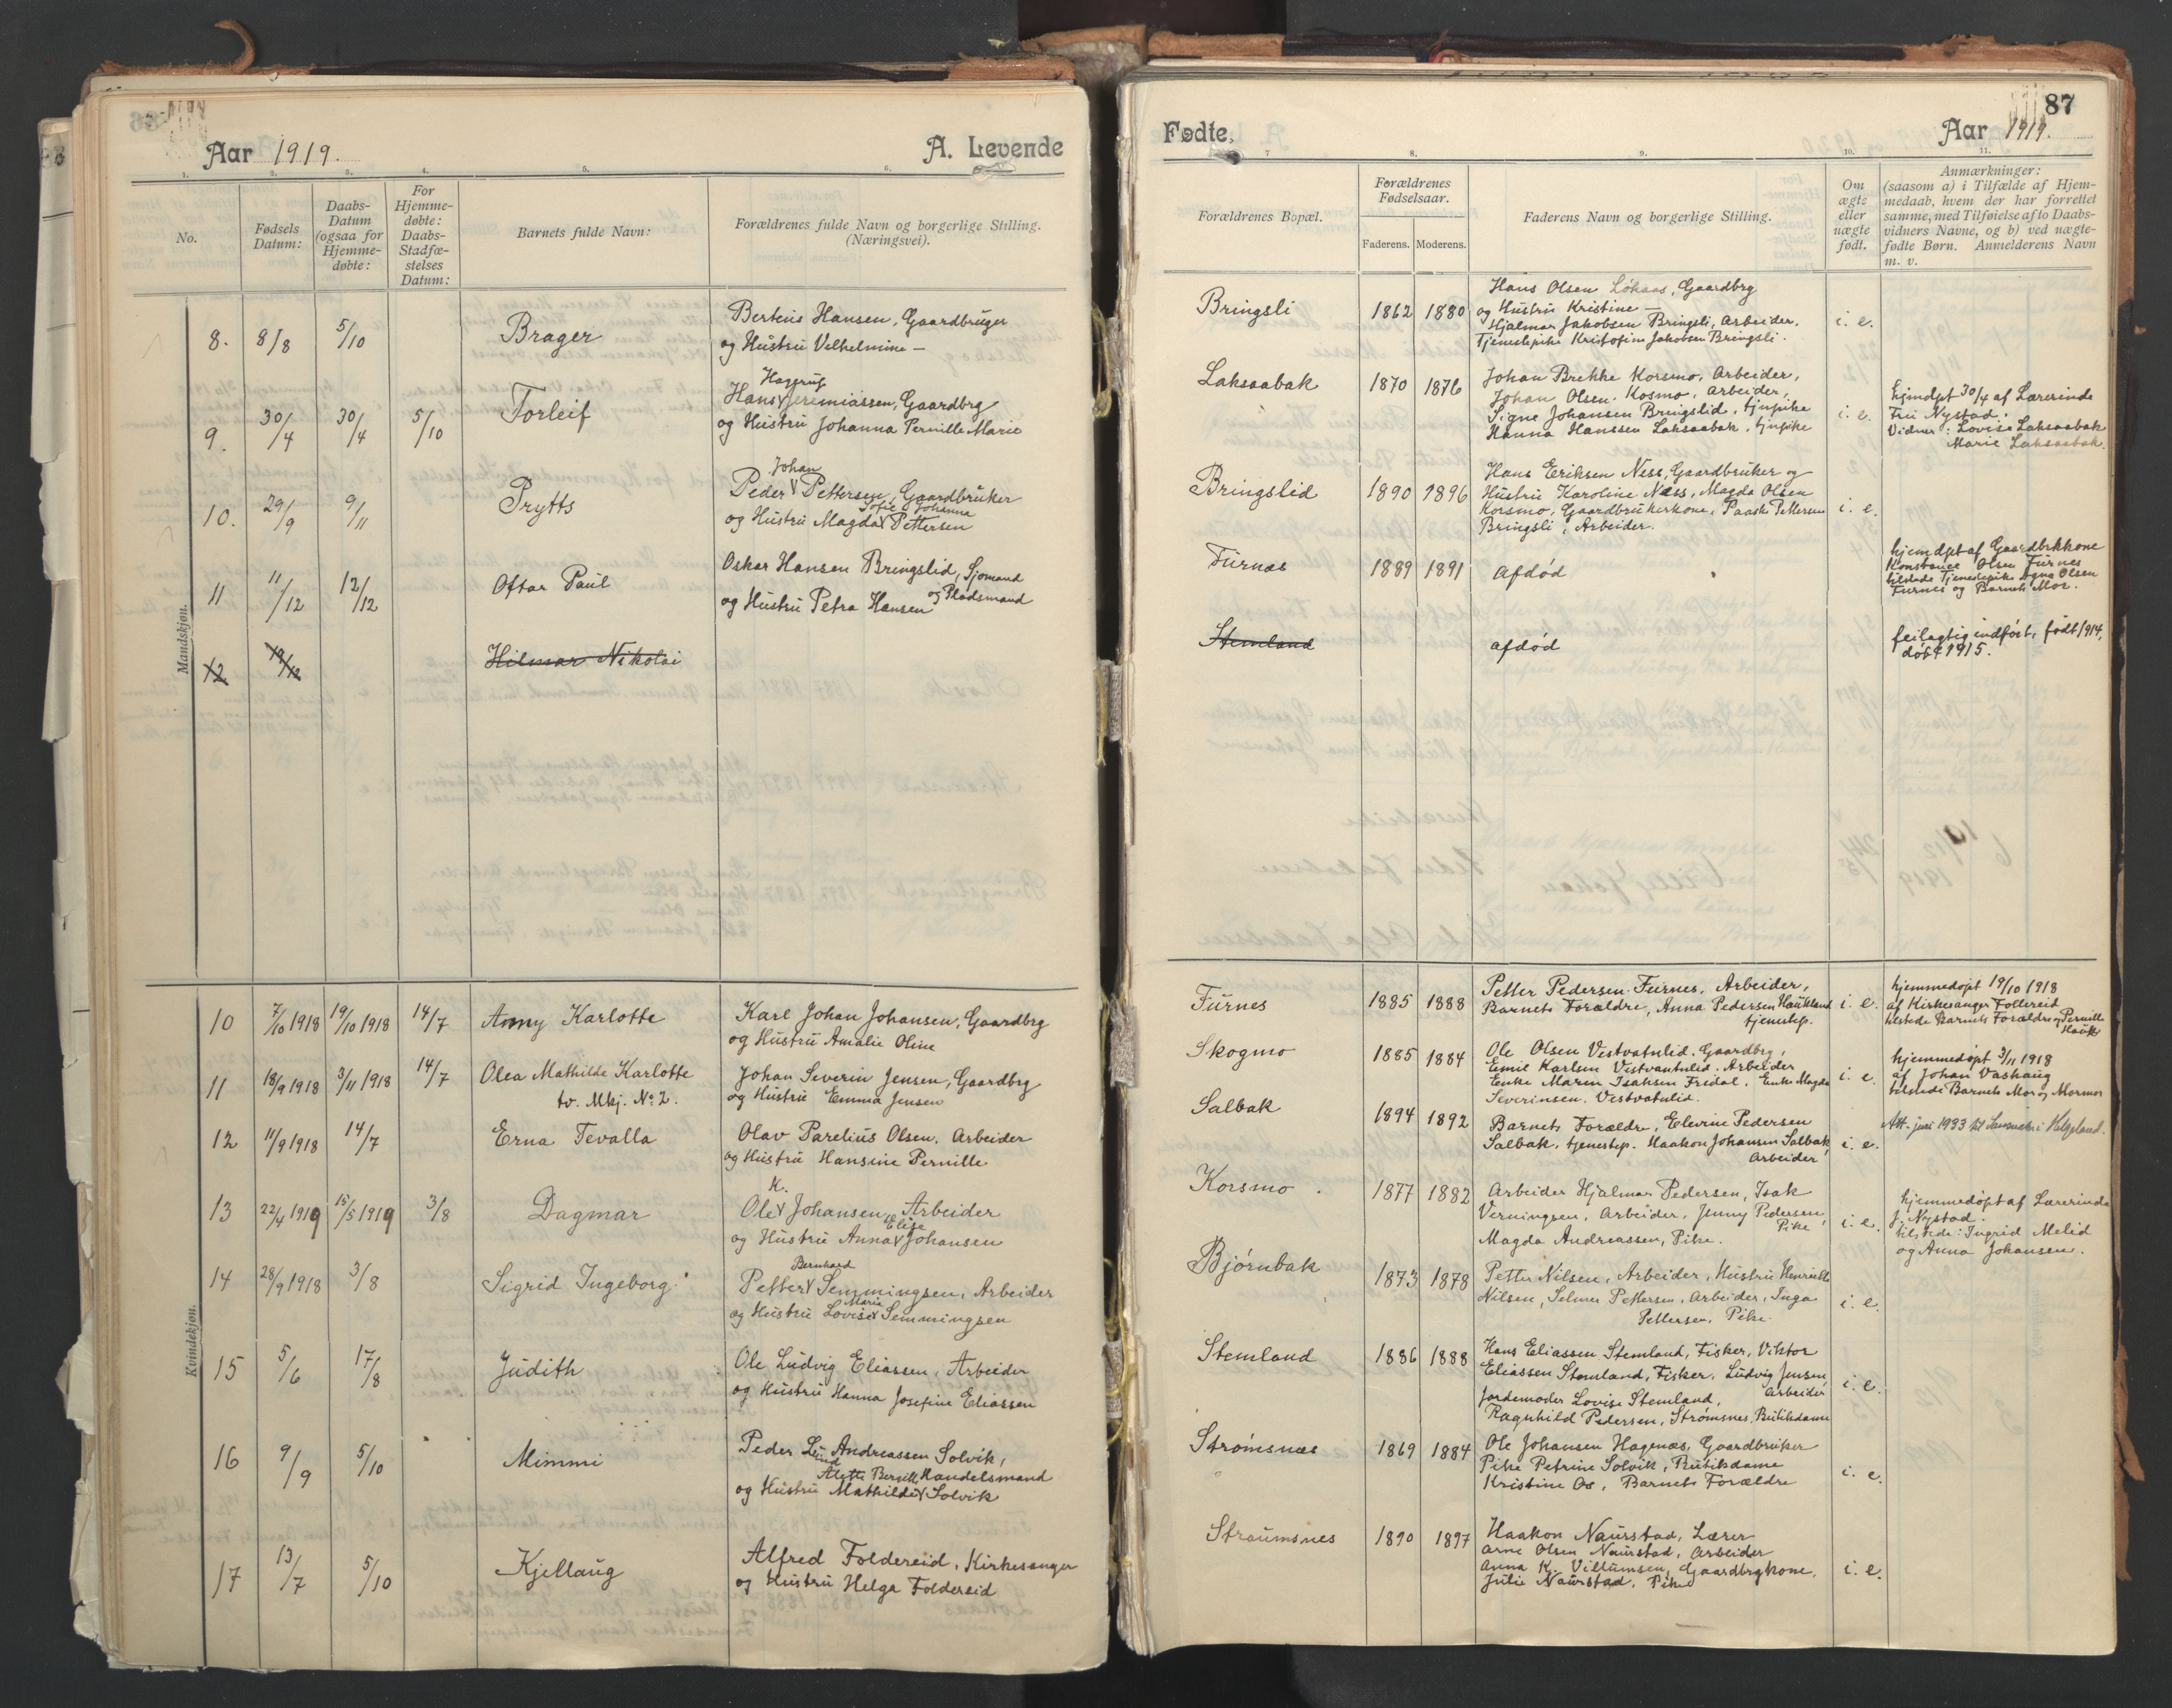 Aar 1919.
A. Levende
1. 2. 3. 4. 5. 6.
No.
Fødsels Datum:
Daabs-Datum (ogsaa for Hjemme-døbte:
For Hjemme-døbte: Daabs-Stadfæ-stelses Datum:
Barnets fulde Navn:
Forældrenes fulde Navn og borgerlige Stilling.
(Næringsvei).
Mandskjøn.
8. 8/8 5/10 Brager Berteus Hansen, Gaardbruger
og Hustru Velhelmine —
9. 30/4 30/4 5/10 Torleif
Haggrup
Hans Jeremiassen, Gaardbrg
og Hustru Johanna Pernille Marie
10. 29/9 9/11 Prytts
Johan
Peder Pettersen, Gaardbruker
Sofie Johanna
og Hustru Magda Pettersen
11 11/12 12/12 Oftar Paul
Oskar Hansen Bringslid, Sjømand
og Pladsmand
og Hustru Petra Hansen
12 12/12 Hilmar Nikolai
Kvindekjøn.
10 7/10 1918 19/10 1918 14/7 Anny Karlotte
Karl Johan Johansen, Gaardbrg
og Hustru Amalie Oline
11 18/9 1918 3/11 1918 14/7 Olea Mathilde Karlotte
tv. Mkj. No 2.
Johan Severin Jensen, Gaardbrg
og Hustru Emma Jensen
12 11/9 1918 14/7 Erna Tevalla
Olav Parelius Olsen. Arbeider
og Hustru Hansine Pernille
13 22/4 1919 15/5 1919 3/8 Dagmar
K.
Ole Johansen, Arbeider
Elise
og Hustru Anna Johansen
14 28/9 1918 3/8 Sigrid Ingeborg
Bernhard
Petter Semmingsen, Arbeider
Marie
og Hustru Lovise Semmingsen
15 5/6 17/8 Judith
Ole Ludvig Eliassen, Arbeider
og Hustru Hanna Josefine Eliassen
16 9/9 5/10 Mimmi
Peder Andreassen Solvik,
Handelsmand
og Hustru Mathilde Solvik
17 13/7 5/10 Kjellaug
Alfred Foldereid, Kirkesanger
og Hustru Helga Foldereid
87
Fødte.
Aar 1919.
7 8. 9. 10. 11.
Forældrenes Bopæl.
Forældrenes Fødselsaar.
Faderens. Moderens.
Faderens Navn og borgerlige Stilling.
Om ægte eller uægte født.
Anmærkninger:
(saasom a) i Tilfælde af Hjem-
medaab, hvem der har forrettet
samme, med Tilføielse af to Daabs-
vidners Navne, og b) ved uægte-
fødte Børn. Anmelderens Navn
m. v.
Bringsli 1862 1880
Hans Olsen Løkaas, Gaardbrg
og Hustru Kristine —
Hjalmar Jakobsen Bringsli, Arbeider.
Tjenestepike Kristofine Jakobsen Bringsli.
i. e.
Laksaabak 1870 1876
Johan Brekke Korsmo, Arbeider,
Johan Olsen Kosmo, Arbeider,
Signe Johansen Bringslid, tjnpike
Hanna Hanssen Laksaabak, tjnpike
i. e.
hjmdøpt 30/4 af Lærerinde
Fru Nystad.
Vidner: Lovise Laksaabak
Marie Laksaabak.
Bringslid 1890 1896
Hans Eriksen Ness, Gaardbruker og
Hustru Karoline Næss, Magda Olsen
Korsmo, Gaardbrukerkone, Paaske Pettersen
Bringsli, Arbeider.
i. e.
Furnæs 1889 1891
Afdød
hjemdøpt af Gaardbrkkone
Konstance Olsen Furnes
tilstede Tjenestepike Agna Olsen
Furnes og Barnets Mor.
Stemland
afdød
feilagtig indført, født 1914,
døbt 1915.
Furnes 1885 1888
Petter Pedersen Furnes, Arbeider,
Barnets Forældre, Anna Pedersen Haukland
tjenestep.
i. e.
hjemmedøpt 19/10 1918
af Kirkesanger Follereid
tilstede Barnets Forældre og Pernille
Hauk
Skogmo 1885 1884
Ole Olsen Vestvatnlid. Gaardbrg,
Emil Karlsen Vestvantnlid. Arbeider
Enke Maren Isaksen Fridal. Enke Magda
Severinsen. Vestvatnlid.
i. e.
hjemmedøpt 3/11 1918
af Johan Vashaug
tilstede Barnets Mor og Mormor
Salbak 1894 1892
Barnets Forældre, Elevine Pedersen
Salbak, tjenestep. Haakon Johansen Salbak,
Arbeider
i. e.
Att. juni 1933 til Helgeland.
Korsmo 1877 1882
Arbeider Hjalmar Pedersen, Isak
Verningsen, Arbeider, Jenny Pedersen,
Pike
Magda Andreassen, Pike.
i. e.
hjemmedøpt af Lærerinde
J. Nystad.
tilstede: Ingrid Melid
og Anna Johansen.
Bjørnbak 1873 1878
Petter Nilsen, Arbeider, Hustru Henriette
Nilsen, Selmer Pettersen, Arbeider, Inga
Pettersen, Pike.
i. e.
Stemland 1886 1888
Hans Eliassen Stemland, Fisker, Viktor
Eliassen Stemland, Fisker. Ludvig Jensen,
Arbeider
Jordemoder Lovise Stemland,
Ragnhild Pedersen, Strømsnes, Butikdame
i. e.
Strømsnæs 1869 1884
Ole Johansen Hagenæs, Gaardbruker
Pike Petrine Solvik, Butikdame
Kristine Os, Barnets Forældre
i. e.
Straumsnes 1890 1897
Haakon Naurstad, Lærer
Arne Olsen Naurstad, Arbeider
Anna K. Villumsen, Gaardbrgkone.
Julie Naurstad, Pike
i. e.